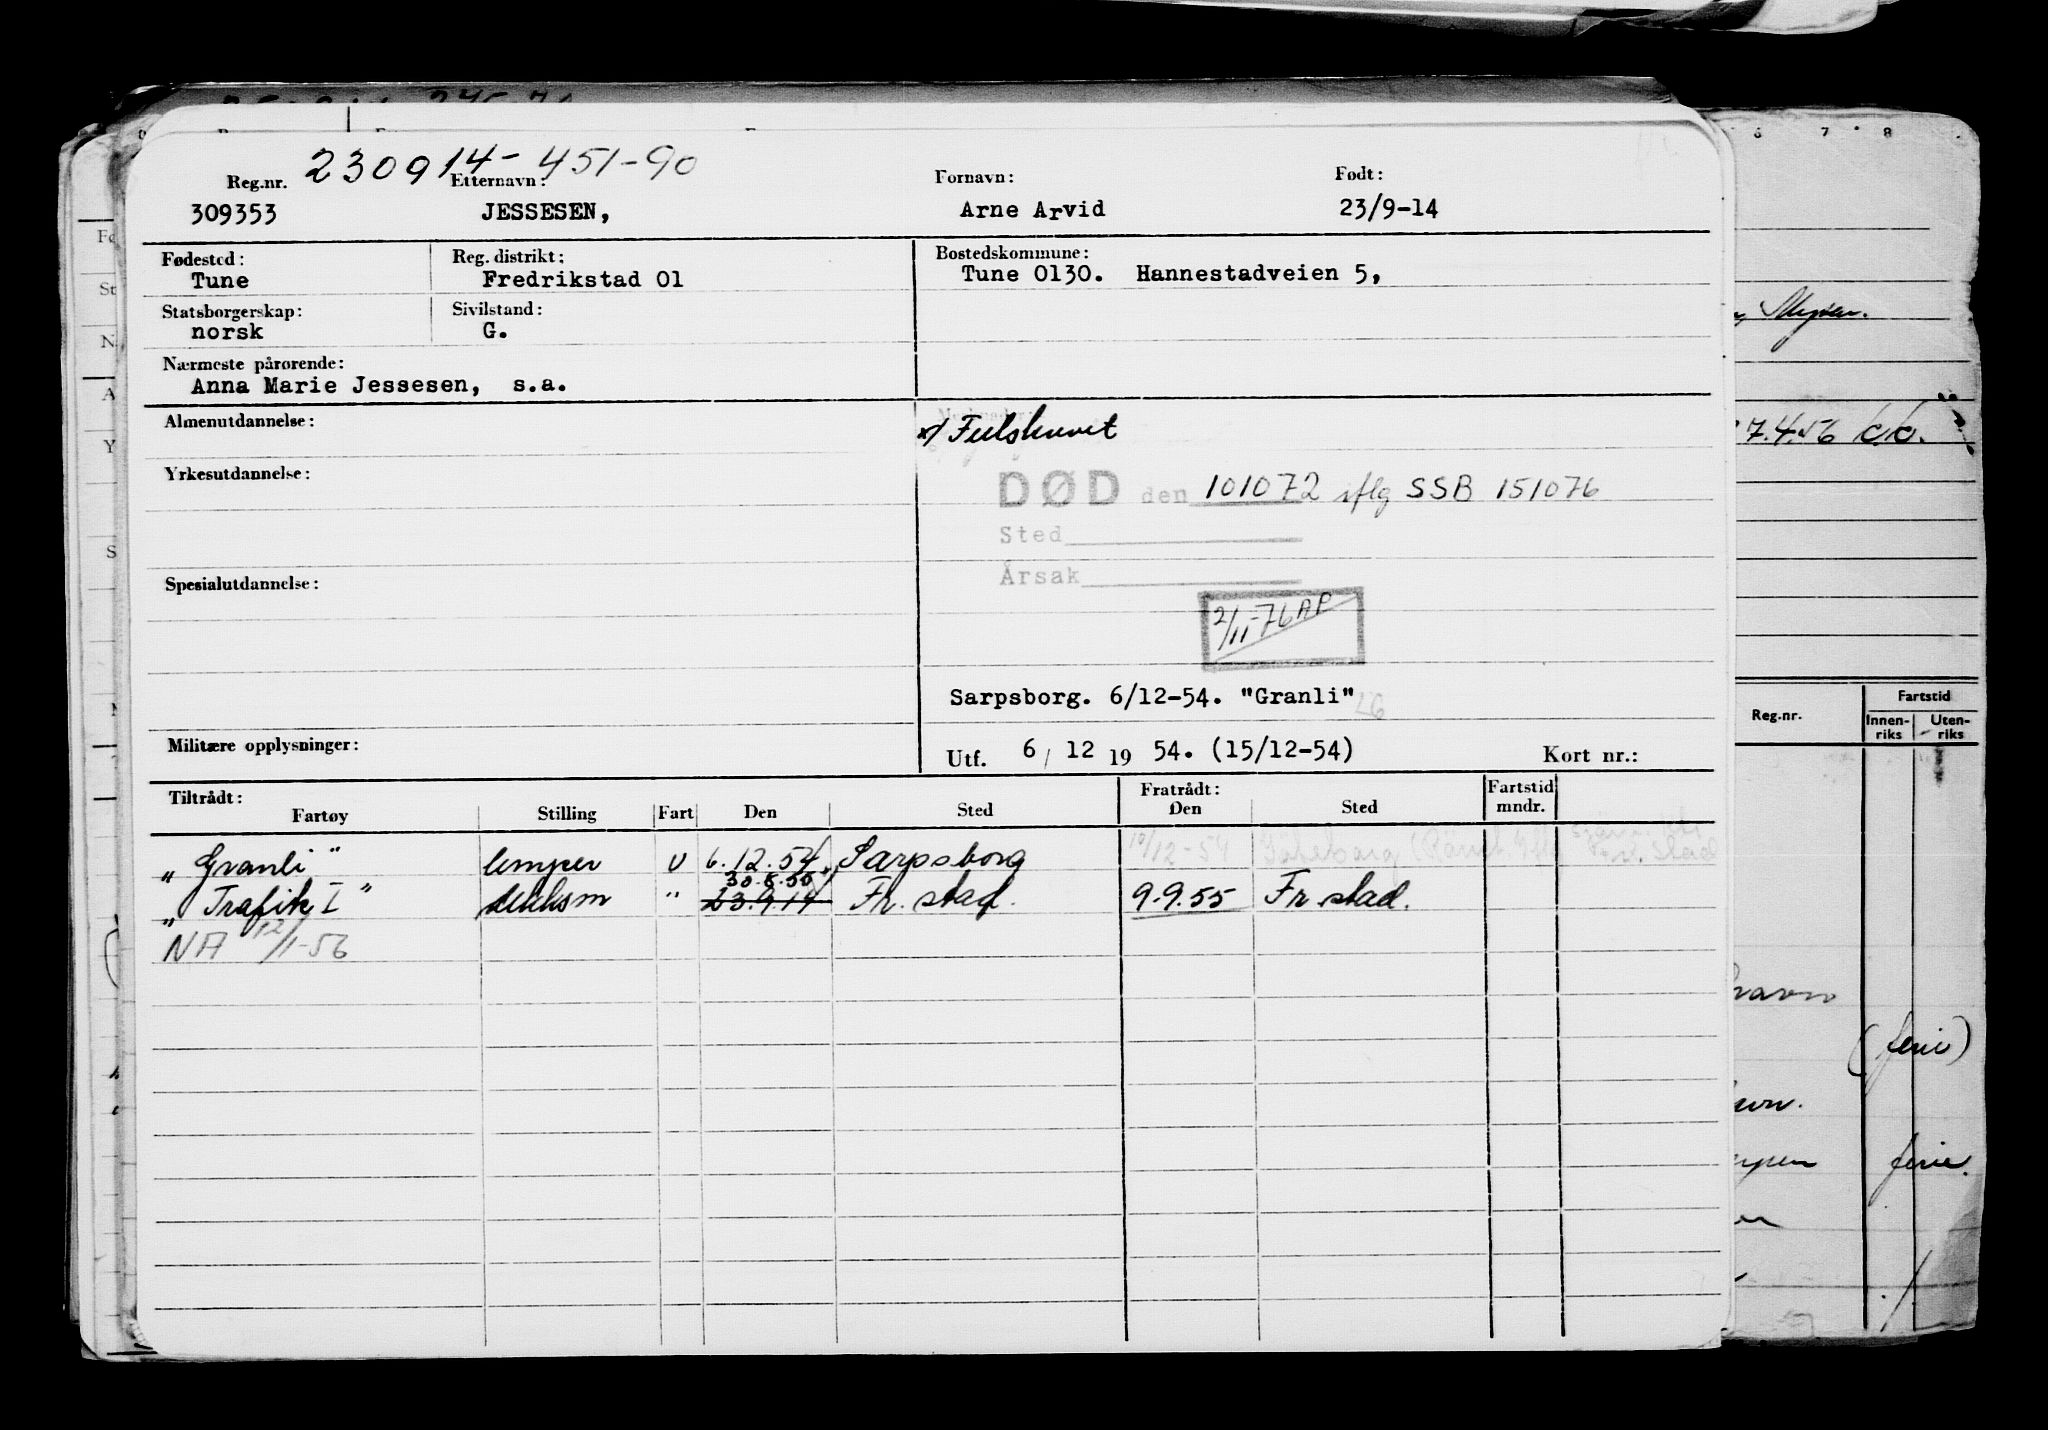 230914-451-90
Reg.nr. Etternavn: Fornavn: Født:
309353 JESSESEN, Arne Arvid 23/9-14
Fødested: Reg. distrikt: Bostedskommune:
Tune Fredrikstad 01 Tune 0130. Hannestadveien 5,
Statsborgerskap: Sivilstand:
norsk G.
Nærmeste pårørende:
Anna Marie Jessesen, s.a.
Almenutdannelse:
x/ Feilskrevet
Yrkesutdannelse:
DØD den 101072 iflg SSB 151076
Sted
Årsak
Spesialutdannelse:
2/11-76 AP
Sarpsborg. 6/12-54. "Granli"
Militære opplysninger:
Utf. 6 / 12 19 54. (15/12-54) Kort nr.:
Tiltrådt: Fratrådt: Fartstid
Fartøy Stilling Fart Den Sted Den Sted mndr.
"Granli" lemper U 6.12.54 Sarpsborg 10/12-54
30.8.55
"Trafik I" dekksm " 23.9.14 Fr.stad. 9.9.55 Fr.stad.
NA 12/1-56
6 7 8
27.4.56
Reg.nr. Fartstid
Innen- Uten-
riks riks
(ferie)
ferie.